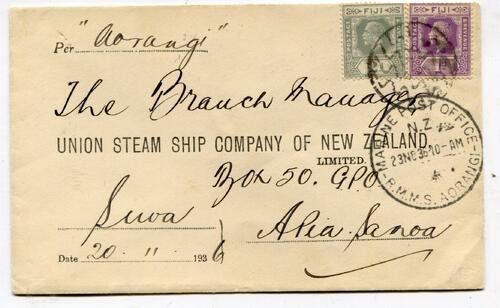 Per "Aorangi"
FIJI FIJI
POSTAGE
The Branch Manager
UNION STEAM SHIP COMPANY OF NEW ZEALAND
LIMITED.
Box 50. G.P.O.
Suva Apia Samoa
Date 20 . 11 . 1936
MARINE POST OFFICE
N.Z.
23NO36 10-AM
R.M.M.S. AORANGI